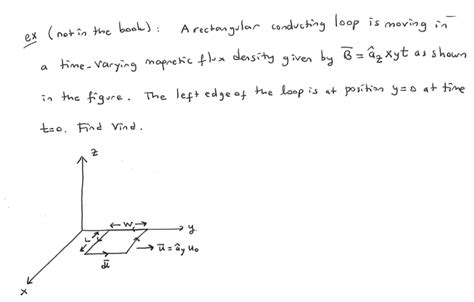 ex (not in the book): A rectangular conducting loop is moving in
a time-varying magnetic flux density given by B̄ = â_z xyt as shown
in the figure. The left edge of the loop is at position y=0 at time
t=0. Find Vind.
z
W
y
L
ū = â_y u₀
d̄l
x